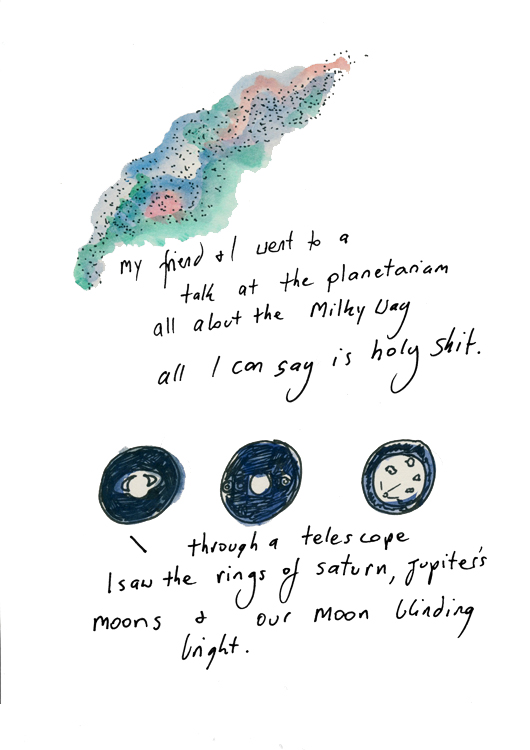 my friend & I went to a
talk at the planetariam
all about the Milky Way
all I can say is holy shit.
through a telescope
I saw the rings of saturn, Jupiter's
moons & our moon blinding
bright.